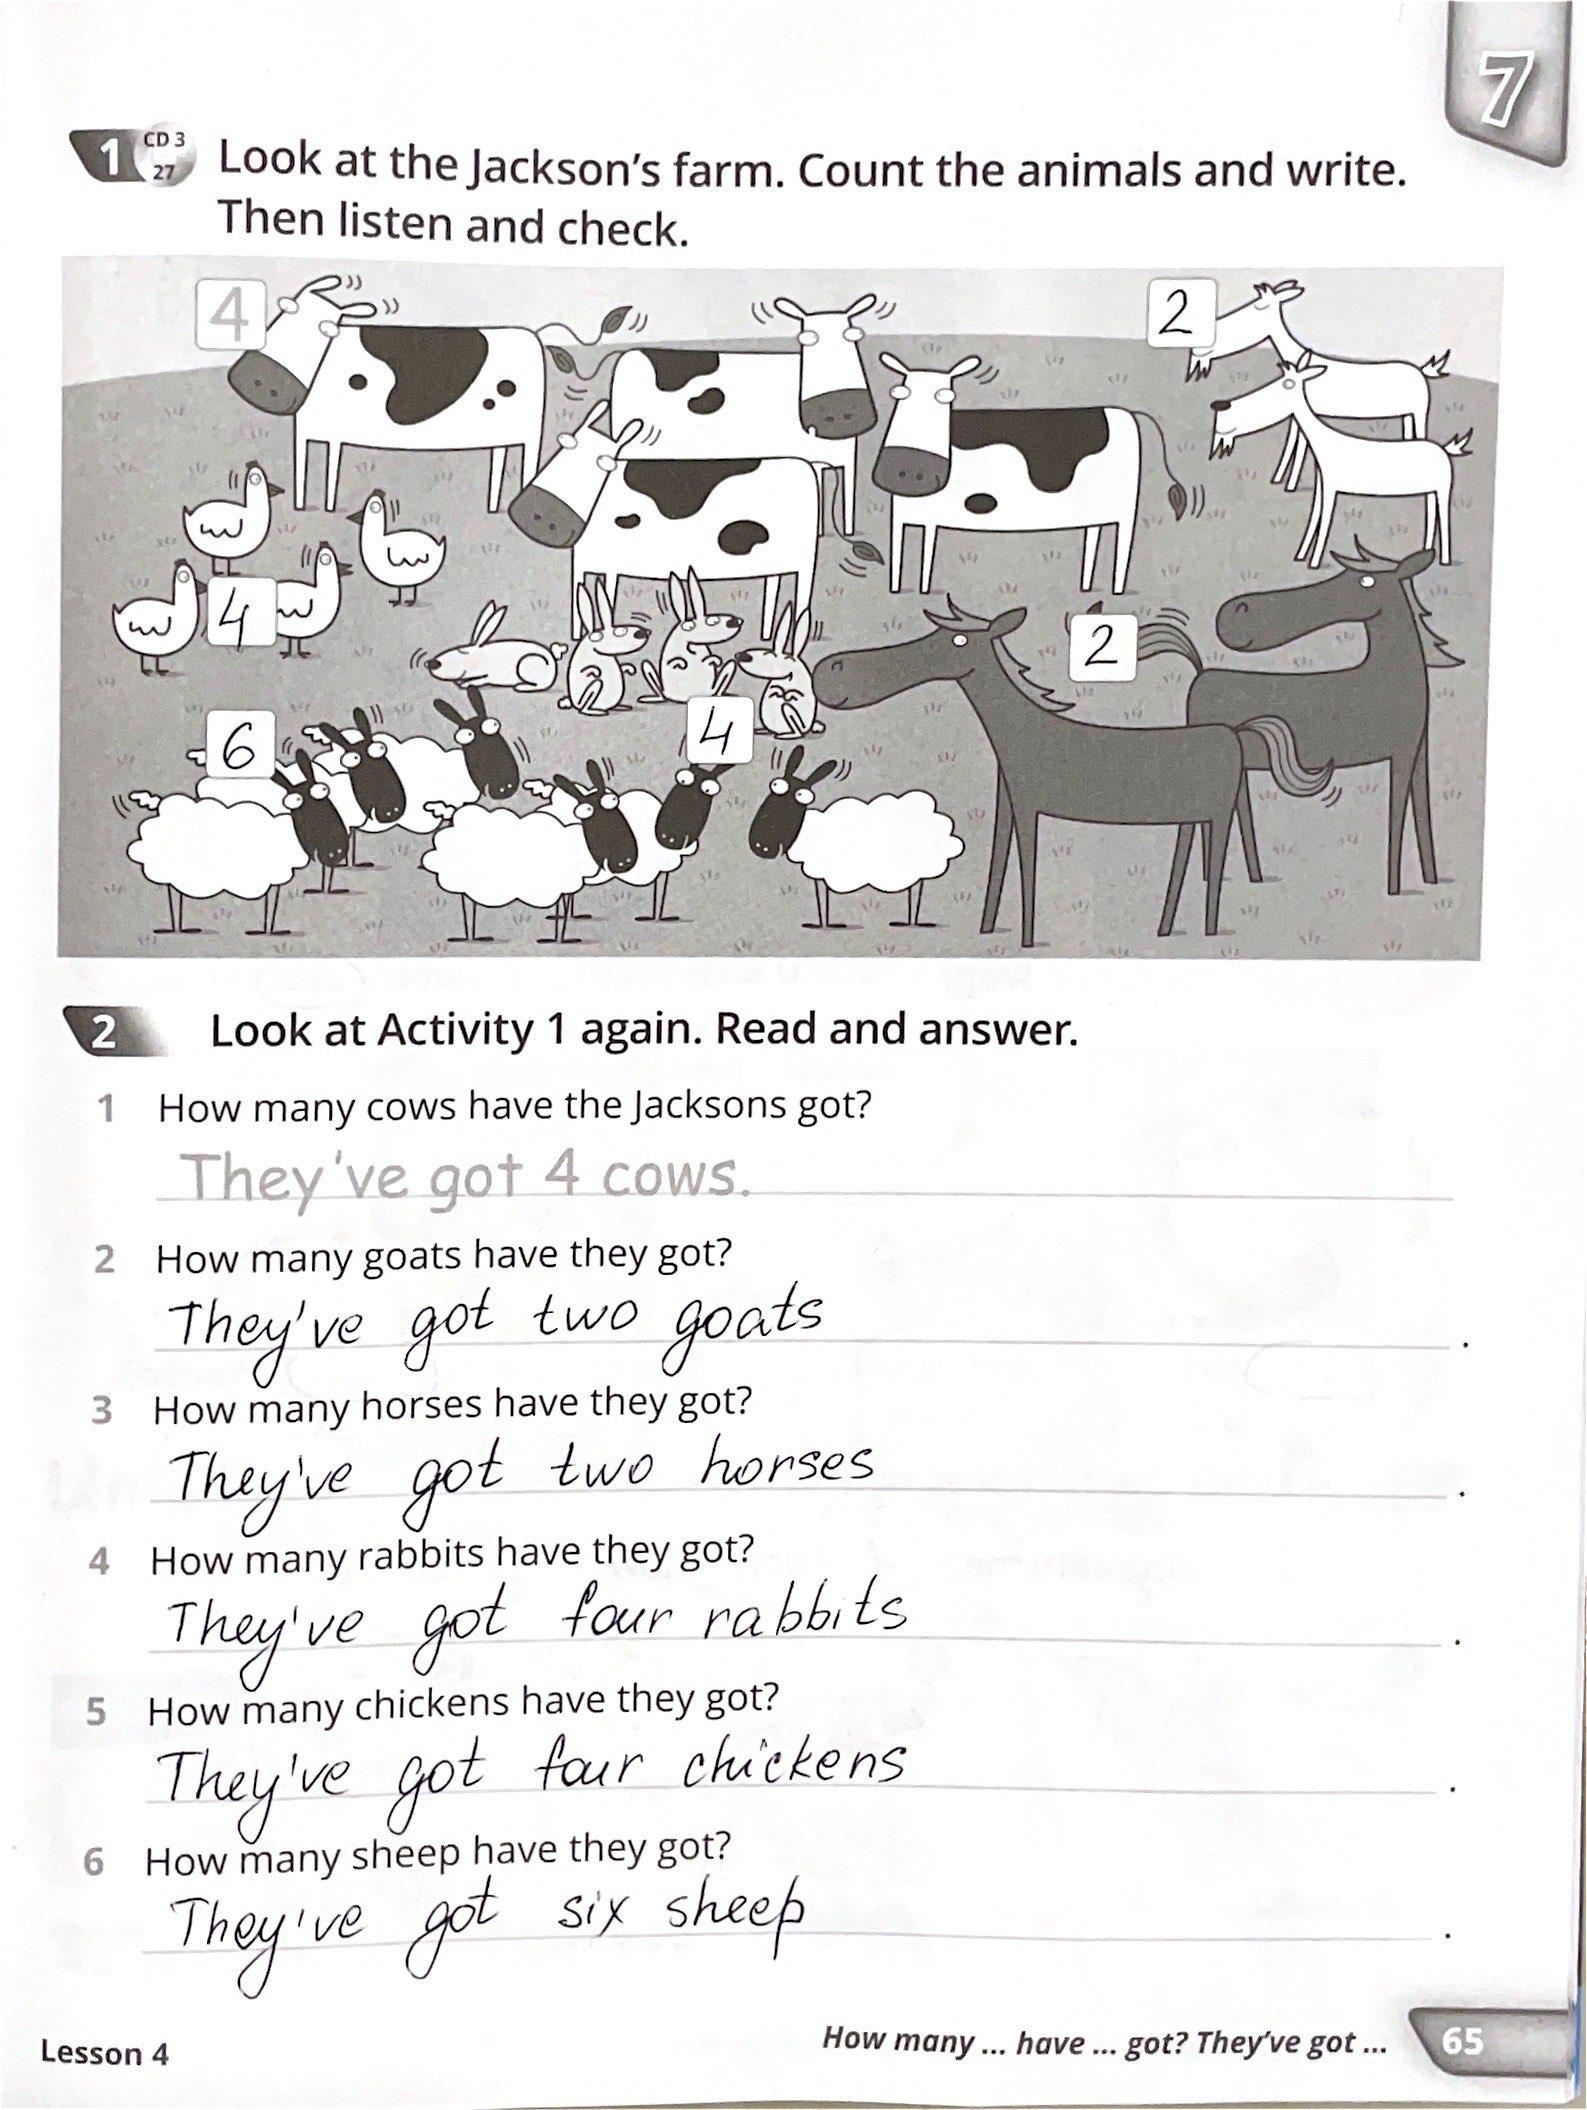 7
1 CD 3 27 Look at the Jackson's farm. Count the animals and write.
Then listen and check.
4
2
4
2
6
4
2 Look at Activity 1 again. Read and answer.
1 How many cows have the Jacksons got?
They've got 4 cows.
2 How many goats have they got?
They've got two goats .
3 How many horses have they got?
They've got two horses .
4 How many rabbits have they got?
They've got four rabbits .
5 How many chickens have they got?
They've got four chickens .
6 How many sheep have they got?
They've got six sheep .
Lesson 4 How many ... have ... got? They've got ... 65